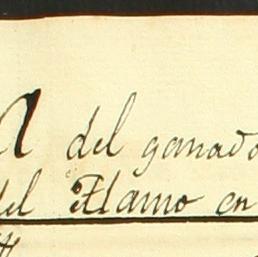 del ganado
del Alamo en